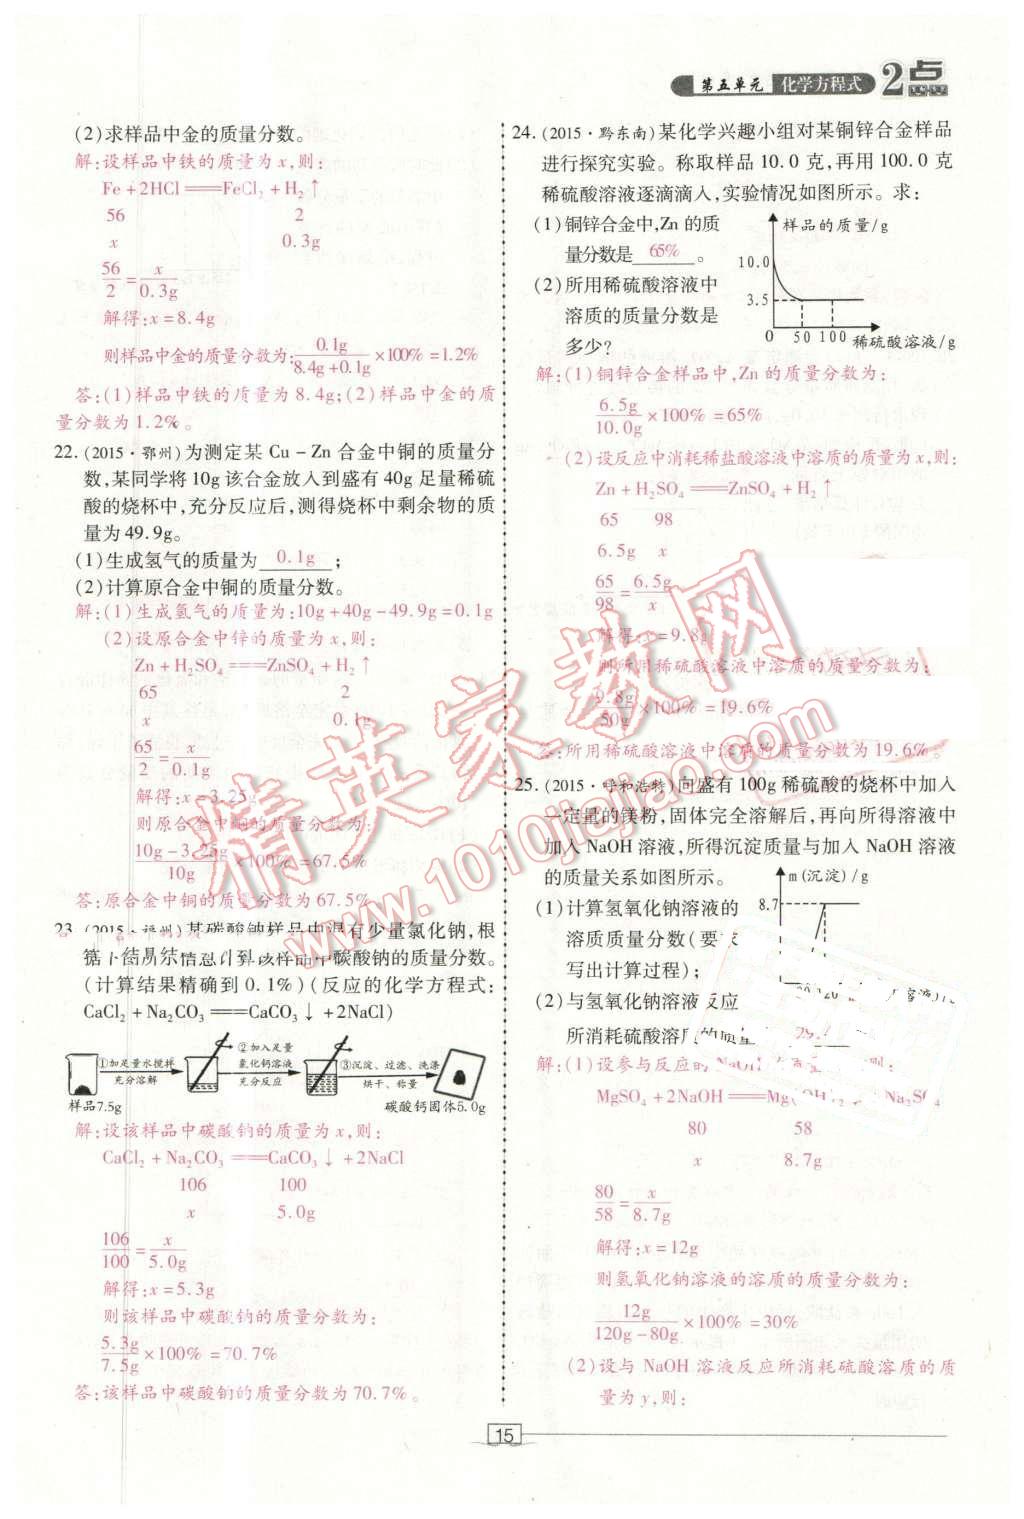 第五单元 化学方程式 2点
(2)求样品中金的质量分数。
解:设样品中铁的质量为x,则:
Fe+2HCl═══FeCl₂+H₂↑
56 2
x 0.3g
56/2=x/0.3g
解得:x=8.4g
则样品中金的质量分数为:0.1g/8.4g+0.1g×100%=1.2%
答:(1)样品中铁的质量为8.4g;(2)样品中金的质
量分数为1.2%。
22.(2015·鄂州)为测定某Cu-Zn合金中铜的质量分
数,某同学将10g该合金放入到盛有40g足量稀硫
酸的烧杯中,充分反应后,测得烧杯中剩余物的质
量为49.9g。
(1)生成氢气的质量为 0.1g ;
(2)计算原合金中铜的质量分数。
解:(1)生成氢气的质量为:10g+40g-49.9g=0.1g
(2)设原合金中锌的质量为x,则:
Zn+H₂SO₄═══ZnSO₄+H₂↑
65 2
x 0.1g
65/2=x/0.1g
解得:x=3.25g
则原合金中铜的质量分数为:
10g-3.25g/10g×100%=67.5%
答:原合金中铜的质量分数为67.5%
23.(2015·福州)某碳酸钠样品中混有少量氯化钠,根
据下图所示信息计算该样品中碳酸钠的质量分数。
(计算结果精确到0.1%)(反应的化学方程式:
CaCl₂+Na₂CO₃═══CaCO₃↓+2NaCl)
①加足量水搅拌 充分溶解
②加入足量 氯化钙溶液 充分反应
③沉淀、过滤、洗涤 烘干、称量
样品7.5g 碳酸钙固体5.0g
解:设该样品中碳酸钠的质量为x,则:
CaCl₂+Na₂CO₃═══CaCO₃↓+2NaCl
106 100
x 5.0g
106/100=x/5.0g
解得:x=5.3g
则该样品中碳酸钠的质量分数为:
5.3g/7.5g×100%=70.7%
答:该样品中碳酸钠的质量分数为70.7%。
24.(2015·黔东南)某化学兴趣小组对某铜锌合金样品
进行探究实验。称取样品10.0克,再用100.0克
稀硫酸溶液逐滴滴入,实验情况如图所示。求:
(1)铜锌合金中,Zn的质
量分数是 65% 。
(2)所用稀硫酸溶液中
溶质的质量分数是
多少?
样品的质量/g
10.0
3.5
0 50 100 稀硫酸溶液/g
解:(1)铜锌合金样品中,Zn的质量分数为:
6.5g/10.0g×100%=65%
(2)设反应中消耗稀盐酸溶液中溶质的质量为x,则:
Zn+H₂SO₄═══ZnSO₄+H₂↑
65 98
6.5g x
65/98=6.5g/x
解得:x=9.8g
则所用稀硫酸溶液中溶质的质量分数为:
9.8g/50g×100%=19.6%
答:所用稀硫酸溶液中溶质的质量分数为19.6%。
25.(2015·呼和浩特)向盛有100g稀硫酸的烧杯中加入
一定量的镁粉,固体完全溶解后,再向所得溶液中
加入NaOH溶液,所得沉淀质量与加入NaOH溶液
的质量关系如图所示。
m(沉淀)/g
8.7
(1)计算氢氧化钠溶液的
溶质质量分数(要求
写出计算过程);
(2)与氢氧化钠溶液反应
所消耗硫酸溶质的质量
解:(1)设参与反应的NaOH质量 则:
MgSO₄+2NaOH═══Mg(OH)₂↓+Na₂SO₄
80 58
x 8.7g
80/58=x/8.7g
解得:x=12g
则氢氧化钠溶液的溶质的质量分数为:
12g/120g-80g×100%=30%
(2)设与NaOH溶液反应所消耗硫酸溶质的质
量为y,则:
15
精英家教网
www.1010jiajiao.com